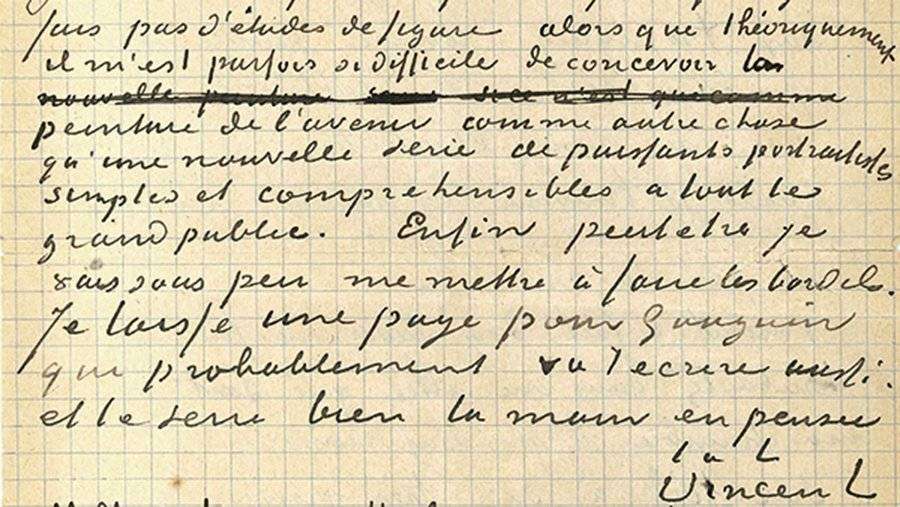 fais pas d'études de figure alors que théoriquement
il m'est parfois si difficile de concevoir la
nouvelle peinture sans si ce n'est que comme
peinture de l'avenir comme autre chose
qu'une nouvelle serie de puissants portraitistes
simples et comprehensibles a tout le
grand public. Enfin peutetre je
vais sous peu me mettre à faire les bordels.
Je laisse une page pour Gauguin
qui probablement va t'ecrire aussi.
et te serre bien la main en pensee
t. à t.
Vincent